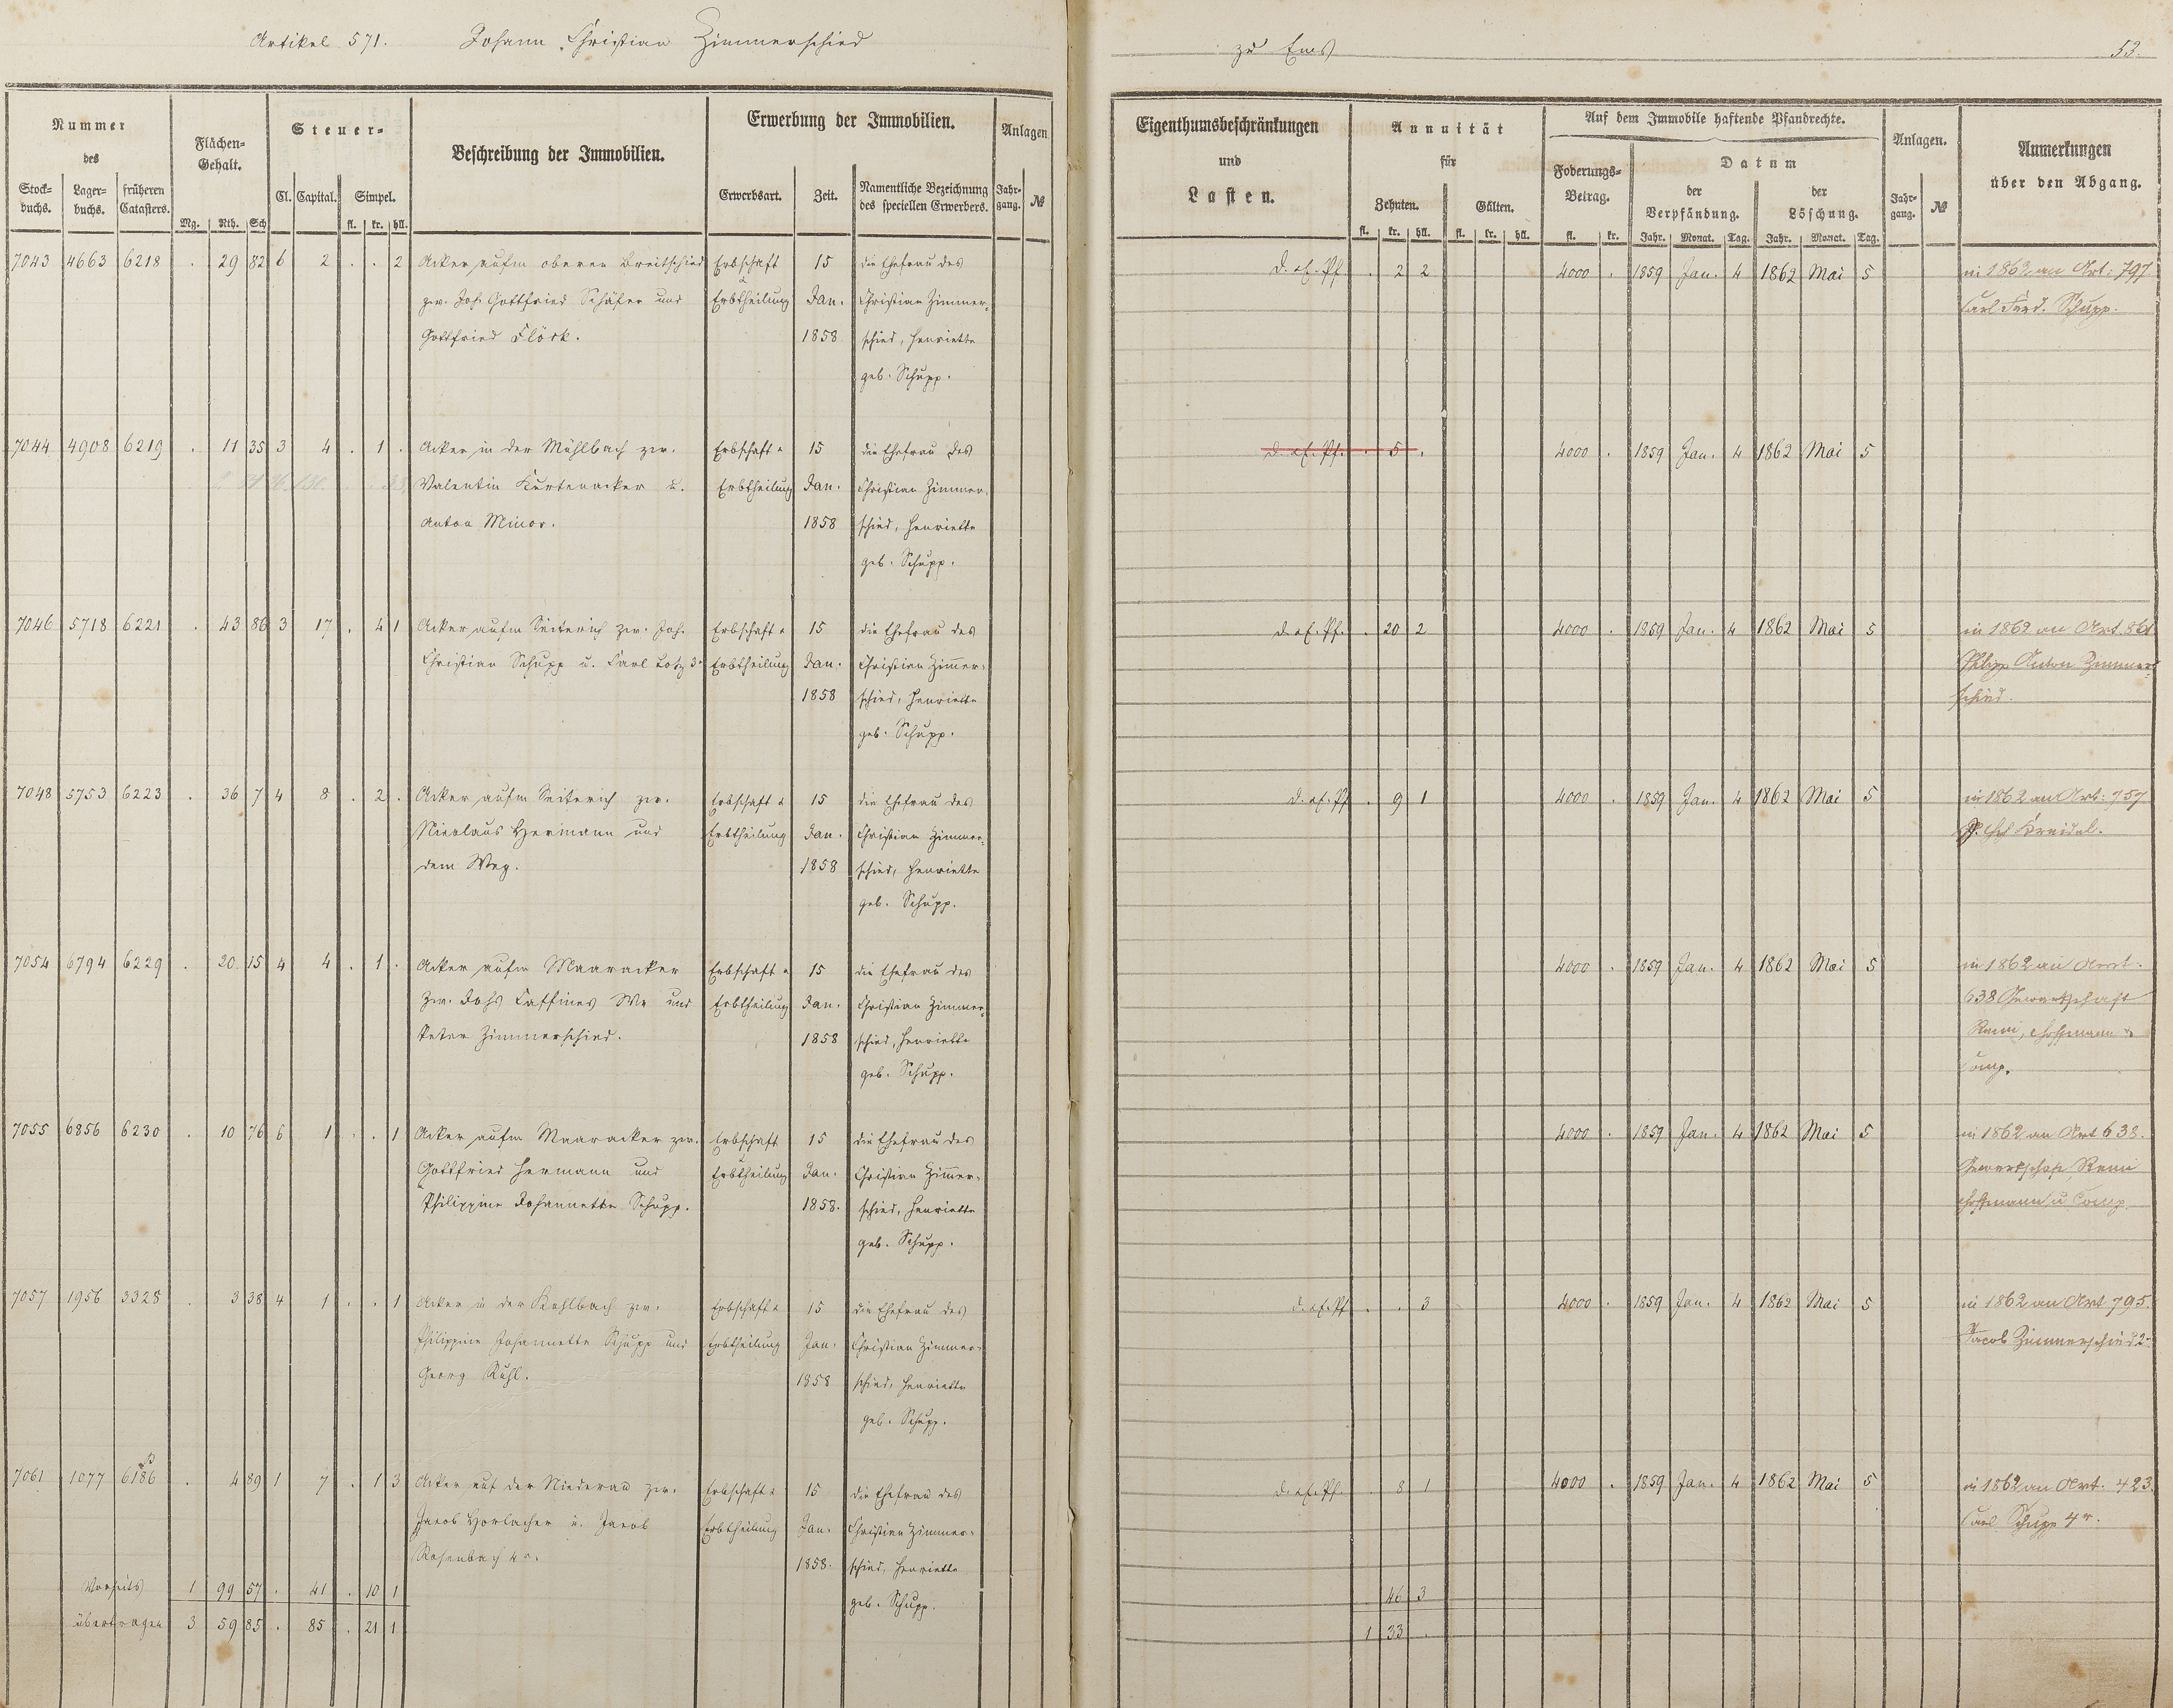 Artikel 571. Johann Christian Zimmerschied
zu Ems 53.
Nummer des Flächen-Gehalt. Steuer- Beschreibung der Immobilien. Erwerbung der Immobilien. Anlagen
Stock-buchs. Lager-buchs. früheren Catasters. Mg. Rth. Sch Cl. Capital. Simpel. fl. kr. hll. Erwerbsart. Zeit. Namentliche Bezeichnung des speciellen Erwerbers. Jahr-gang. №
Eigenthumsbeschränkungen und Lasten. Annuität für Auf dem Immobile haftende Pfandrechte. Anlagen. Anmerkungen über den Abgang.
Zehnten. Gülten. fl. kr. hll. fl. kr. hll. Foderungs-Betrag. fl. kr. Datum der Verpfändung. Jahr. Monat. Tag. der Löschung. Jahr. Monat. Tag. Jahr-gang. №
7043 4663 6218 . 29 82 6 2 . . 2 Acker aufm oberen Breitschied Erbschaft 15 die Ehefrau des D. ef. Pf . 2 2 4000 . 1859 Jan. 4 1862 Mai 5 in 1862 an Art. 797
zw. Joh. Gottfried Schäfer und Erbtheilung Jan. Christian Zimmer- Carl Ferd. Schupp.
Gottfried Flöck. 1858 schied, Henriette
geb. Schupp.
7044 4908 6219 . 11 35 3 4 . 1 . Acker in der Mühlbach zw. Erbschaft & 15 die Ehefrau des d. ef. Pf. . 5 . 4000 . 1859 Jan. 4 1862 Mai 5
Valentin Kurtenacker u. Erbtheilung Jan. Christian Zimmer-
Anton Minor. 1858 schied, Henriette
geb. Schupp.
7046 5718 6221 . 43 86 3 17 . 4 1 Acker aufm Seiterich zw. Joh. Erbschaft & 15 die Ehefrau des d. ef. Pf. . 20 2 4000 . 1859 Jan. 4 1862 Mai 5 in 1862 an Art. 861
Christian Schupp u. Carl Lotz 3r Erbtheilung Jan. Christian Zimmer- Philipp Anton Zimmer-
1858 schied, Henriette schied.
geb. Schupp.
7048 5753 6223 . 36 7 4 8 . 2 . Acker aufm Seiterich zw. Erbschaft & 15 die Ehefrau des d. ef. Pf . 9 1 4000 . 1859 Jan. 4 1862 Mai 5 in 1862 an Art. 757
Nicolaus Hermann und Erbtheilung Jan. Christian Zimmer- Kreidel.
dem Weg. 1858 schied, Henriette
geb. Schupp.
7054 6794 6229 . 20 15 4 4 . 1 . Acker aufm Maaracker Erbschaft & 15 die Ehefrau des 4000 . 1859 Jan. 4 1862 Mai 5 in 1862 an Art.
zw. Johs Caffines We und Erbtheilung Jan. Christian Zimmer- 638 Gewerkschaft
Peter Zimmerschied. 1858 schied, Henriette Remi, Hoffmann &
geb. Schupp. Comp.
7055 6856 6230 . 10 76 6 1 . . 1 Acker aufm Maaracker zw. Erbschaft 15 die Ehefrau des 4000 . 1859 Jan. 4 1862 Mai 5 in 1862 an Art 638.
Gottfried Hermann und Erbtheilung Jan. Christian Zimmer- Gewerkschaft Remi
Philippine Johannette Schupp. 1858. schied, Henriette Hoffmann u Comp.
geb. Schupp.
7057 1956 3328 . 3 38 4 1 . . 1 Acker in der Kohlbach zw. Erbschaft & 15 die Ehefrau des d. ef. Pf . . 3 4000 . 1859 Jan. 4 1862 Mai 5 in 1862 an Art 795.
Philippine Johannette Schupp und Erbtheilung Jan. Christian Zimmer- Jacob Zimmerschied 2r
Georg Kuhl. 1858 schied, Henriette
geb. Schupp.
7061 1077 6186 . 4 89 1 7 . 1 3 Acker auf der Niederau zw. Erbschaft & 15 die Ehefrau des d. ef. Pf. . 8 1 4000 . 1859 Jan. 4 1862 Mai 5 in 1862 an Art. 423.
Jacob Horlacher u. Jacob Erbtheilung Jan. Christian Zimmer- Carl Schupp 4r.
Rosenbach 4r. 1858. schied, Henriette
Vorseits 1 99 57 . 41 . 10 1 geb. Schupp. 46 3
übertragen 3 59 85 . 85 . 21 1 1 33 .